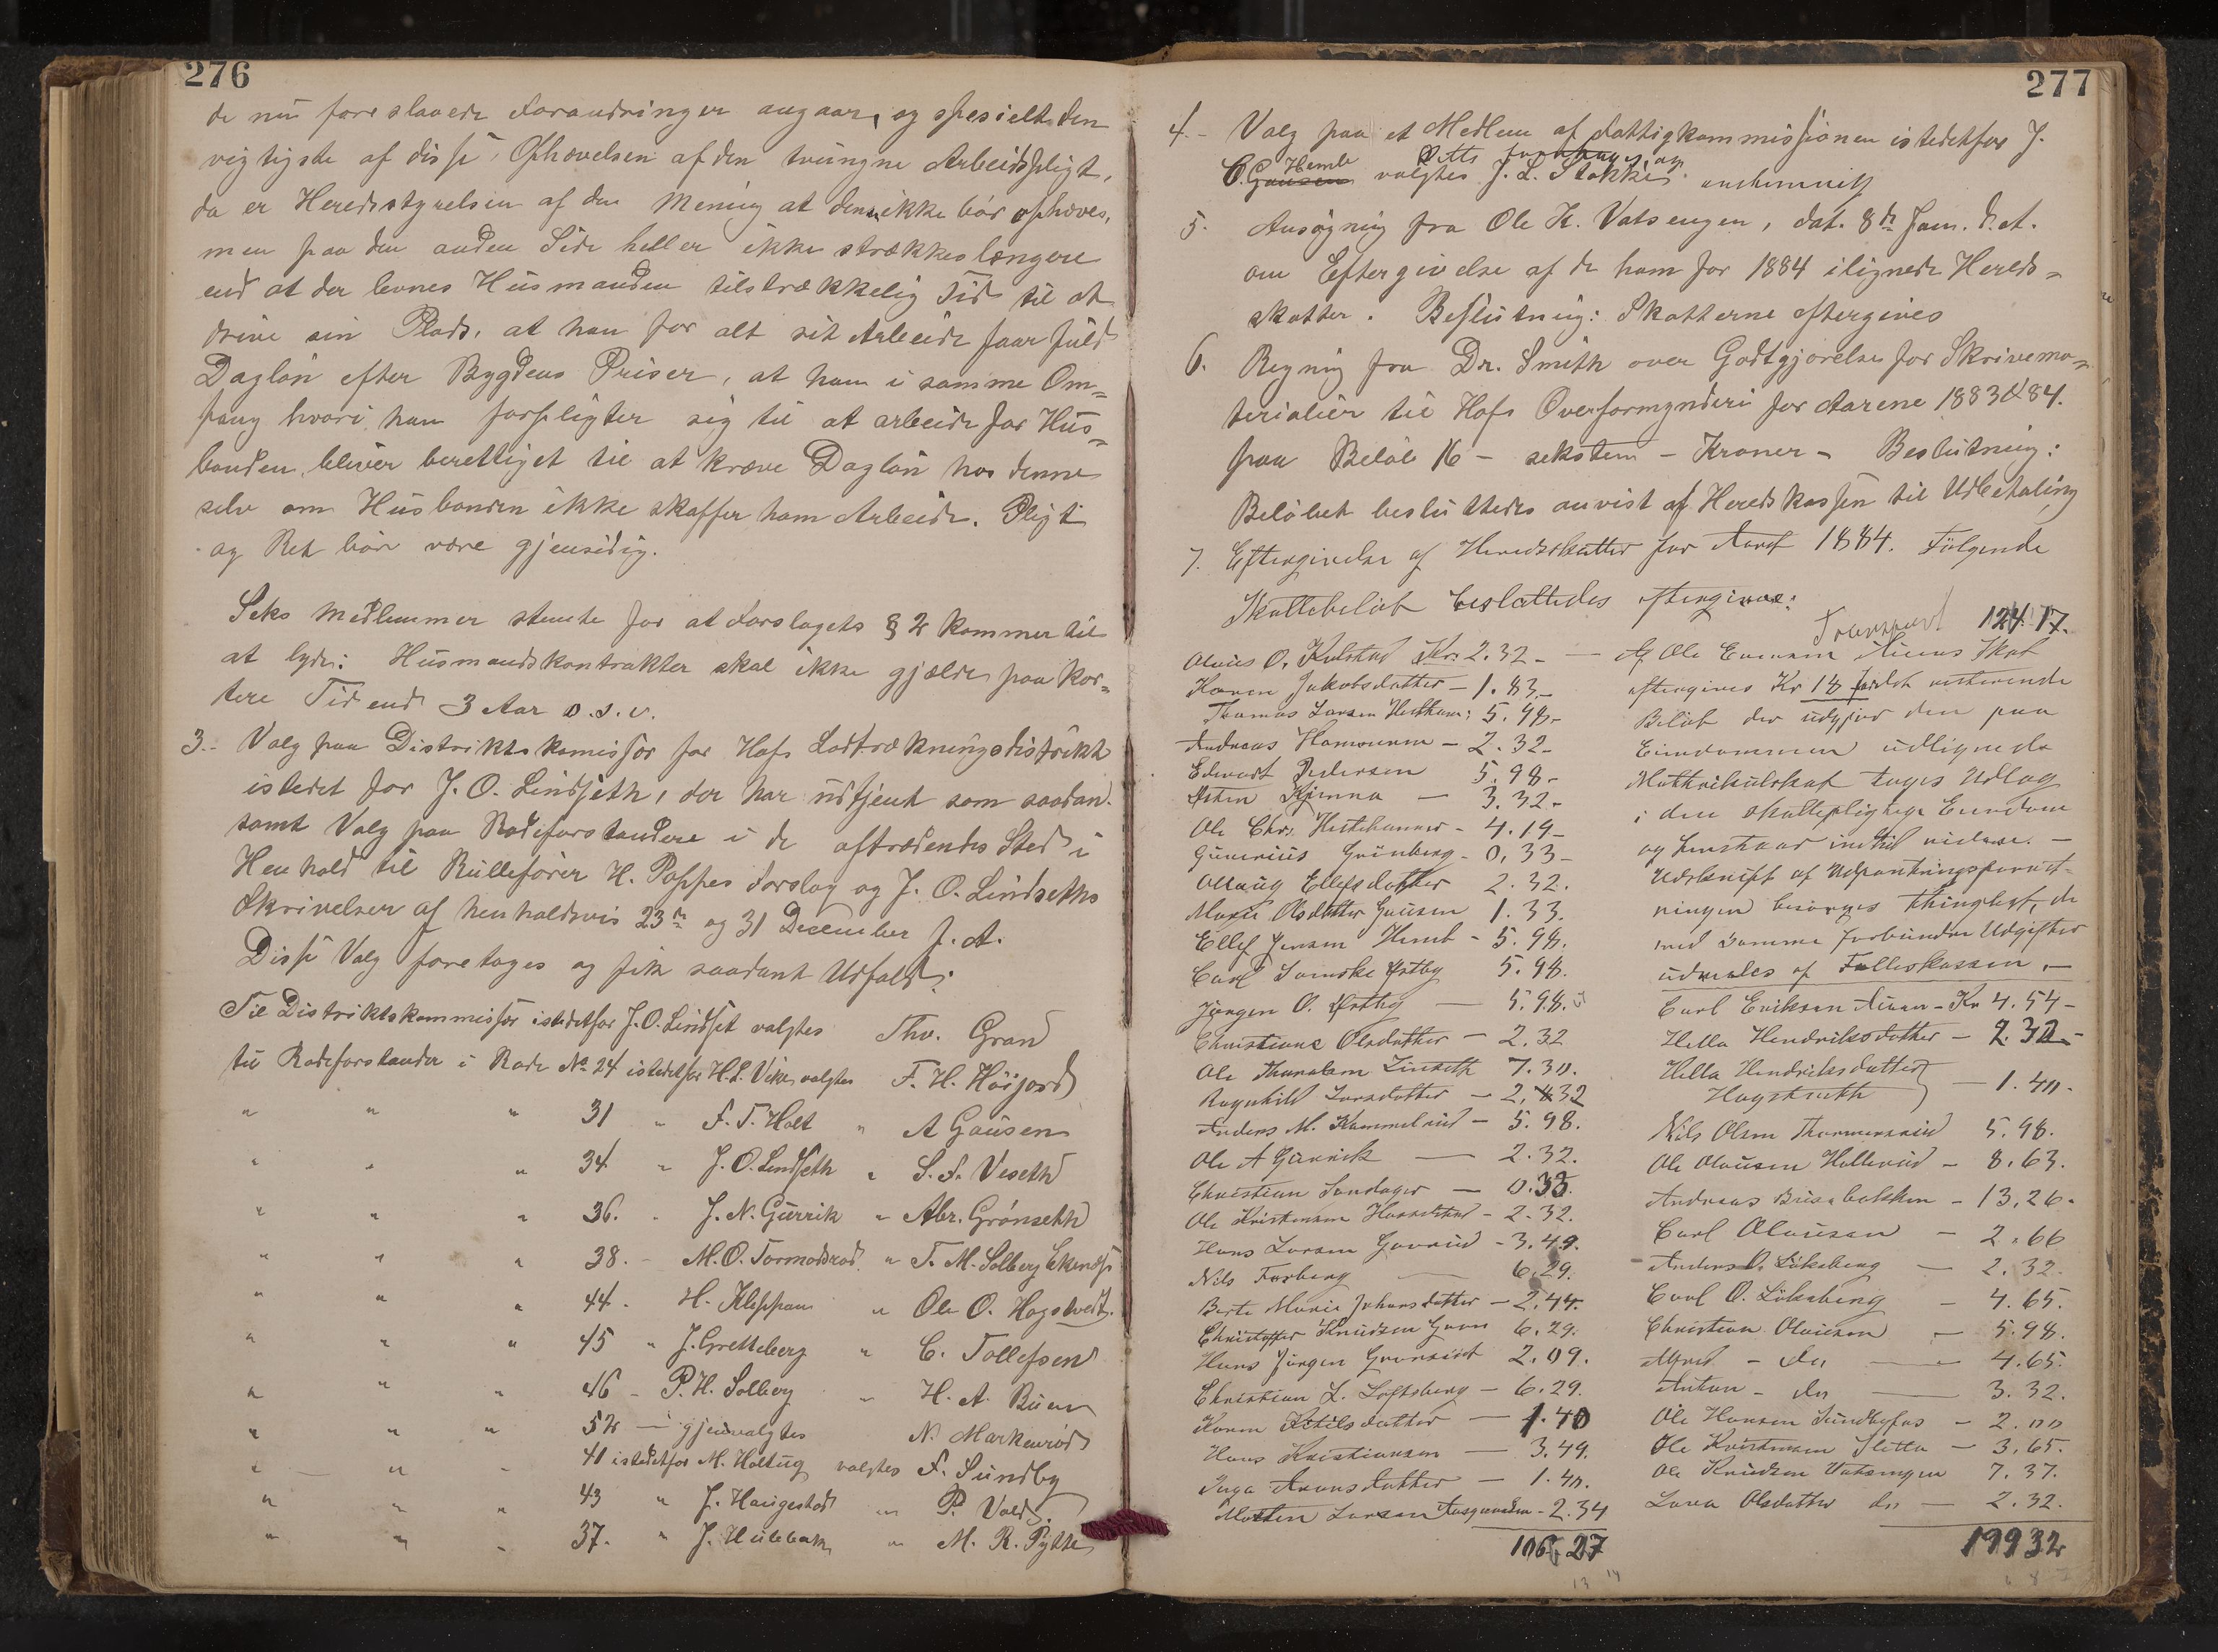 276
de nu foreslaaede Forandringer angaar, og specielt den
vigtigste af disse, Ophævelsen af den tvungne Arbeidspligt,
da er Heredsstyrelsen af den Mening at den ikke bør ophæves,
men paa den anden Side heller ikke strækkes længere
end at der levnes Husmanden tilstrækkelig Tid til at
drive sin Plads, at han for alt sit Arbeide faar fuld
Dagløn efter Bygdens Priser, at han i samme Om=
fang hvori han forpligter sig til at arbeide for Hus=
bonden bliver berettiget til at kræve Dagløn hos denne
selv om Husbonden ikke skaffer ham Arbeide. Pligt
og Ret bør være gjensidig.
Seks Medlemmer stemte for at Forslagets § 2 kommer til
at lyde: Husmandskontrakter skal ikke gjælde paa kor=
tere Tid end 3 Aar o.s.v.
3.- Valg paa Distriktskomissær for Hofs Lodtrækningsdistrikt
istedet for J. O. Lindseth, der har udtjent som saadan.
samt Valg paa Rodeforstandere i de aftrædendes Sted i
Henhold til Rullefører H. Poppes Forslag og J. O. Lindseths
Skrivelser af henholdsvis 23de og 31 December f. A.
Disse Valg foretoges og fik saadant Udfald:
Til Distriktskommissær istedetfor J. O. Lindset valgtes Thv. Gran
til Rodeforstander i Rode No 24 istedetfor H. L. Vike valgtes F. H. Høijord
" " " 31 " F. T. Holt " A Gausen
" " " 34 " J. O. Lindseth " S. A. Veseth
" " " 36. " J. N. Gurrik " Abr. Grønseth
" " " 38. - M. O. Tormodsrød " T. M. Solberg
" " " 44 - H. Kleppan " Ole O. Hagstvedt.
" " " 45 " J. Gretteberg " C. Tollefsen
" " " 46 - P. H. Solberg " H. A. Buer
" " " 52 — gjenvalgtes N. Markerød
" " " 41 istedetfor M. Holtug valgtes F. Sundby
" " " 43 " J. Haugestad " P. Vold.
" " " 37. " J. Hulebak " M. R. Pytte
277
4.- Valg paa et Medlem af Fattigkommissionen istedetfor J.
Hemb
C. Gausen valgtes J. L. Stokke enstemmig
5. Ansøgning fra Ole K. Vatsengen, dat. 8de Jan. d. A.
om Eftergivelse af de ham for 1884 ilignede Hereds=
skatter. Beslutning: Skatterne eftergives
6. Regning fra Dr. Smith over Godtgjørelse for Skrivema=
terialier til Hofs Overformynderi for Aarene 1883 & 84.
paa Beløb 16 - seksten - Kroner - Beslutning:
Beløbet besluttedes anvist af Heredskassen til Udbetaling
7. Eftergivelse af Heredsskatter for Aaret 1884. Følgende
Skattebeløb besluttedes eftergivne:
Olaus O. Kolstad Kr. 2.32 -
Karen Jakobsdatter - 1.83 -
Thomas Larsen 5.98 -
Andreas Hansen - 2.32 -
Edvart Pedersen 5.98 -
Kjenna - 3.32 -
Ole Chr. - 4.19 -
Gunerius Grünberg - 0,33 -
Ellefsdatter 2.32.
Marie Olsdatter Gausen 1.33.
Ellef Jensen Hemb - 5.98.
Carl Svenske Østby 5.98.
Jørgen O. Østby — 5.98.
Christiane Olsdatter - 2.32
Ole Linseth 7.30.
Ragnhild Larsdatter - 2.32
Anders M. Hammelrud - 5.98.
Ole A Gurrik — 2.32.
Christian Sandager — 0.33.
Ole Kristensen - 2.32.
Hans Larsen - 3.49.
Nils Farberg — 6.29.
Berte Marie Johansdatter - 2.44.
Christoffer Knudsen 6.29.
Hans Jørgen 2.09.
Christian L. Loftsberg - 6.29.
Karen Ketilsdatter — 1.40
Hans Kristiansen — 3.49.
Inga Aronsdatter - 1.40.
Morten Larsen - 2.34
106,27
Transport 124.17.
Af Ole Skat
eftergives Kr 18 resterende
Beløb der udgjør den paa
Eiendommen udlignede
Matrikulskat tages Udlag
i den skattepligtige Eiendom
og henstaar indtil videre. -
Udskrift af Udpantningsforret=
ningen besørges thinglyst, de
med samme forbundne Udgifter
udredes af Felleskassen. -
Carl Eriksen - Kr 4.54 -
Hella Hendriksdatter - 2.32 -
Hella Hendriksdatter - 1.40 -
Nils Olsen 5.98.
Ole Olausen Hellerud - 8.63.
Andreas - 13.26.
Carl Olausen - 2.66
Anders O. Løksberg — 2.32.
Carl O. Løksberg - 4.65.
Christian Olausen - 5.98.
Alfred - do — 4.65.
Anton - do — 3.32.
Ole Hansen Sundbyfos - 2.00
Ole Kristensen Sletta - 3.65.
Ole Knudsen Vatsengen 7.37.
Olsdatter do — 2.32.
19932